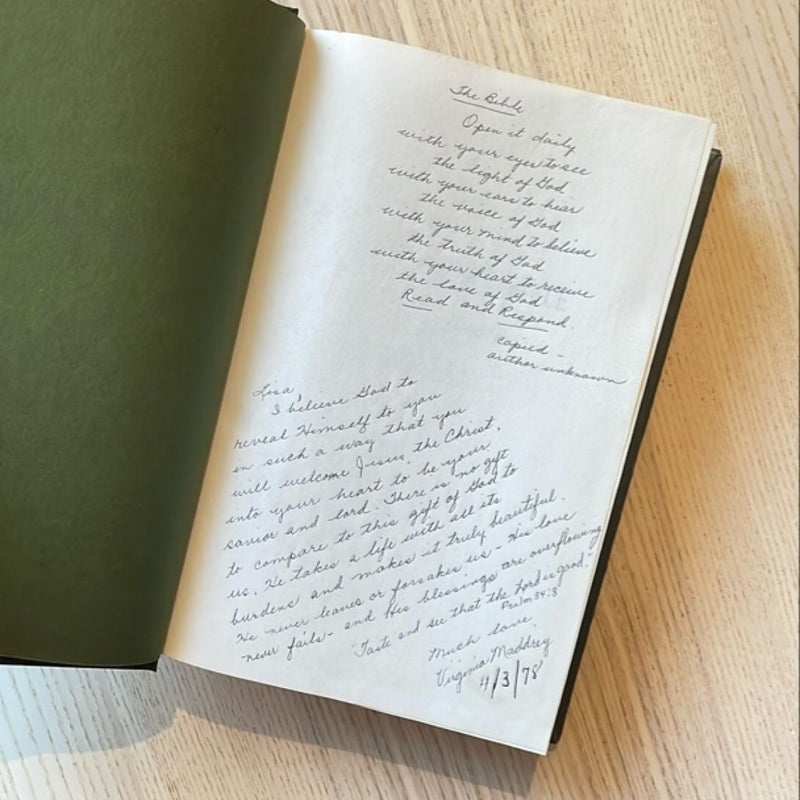 The Bible
Open it daily
with your eyes to see
the light of God
with your ears to hear
the voice of God
with your mind to believe
the truth of God
with your heart to receive
the love of God
Read and Respond.
copied -
author unknown
Lisa,
I believe God to
reveal Himself to you
in such a way that you
will welcome Jesus, the Christ,
into your heart to be your
savior and lord. There is no gift
to compare to this gift of God to
us. He takes a life with all its
burdens and makes it truly beautiful.
He never leaves or forsakes us - His love
never fails - and His blessings are overflowing.
"Taste and see that the Lord is good."
Psalm 34:8
Much love,
Virginia Maddrey
4/3/78